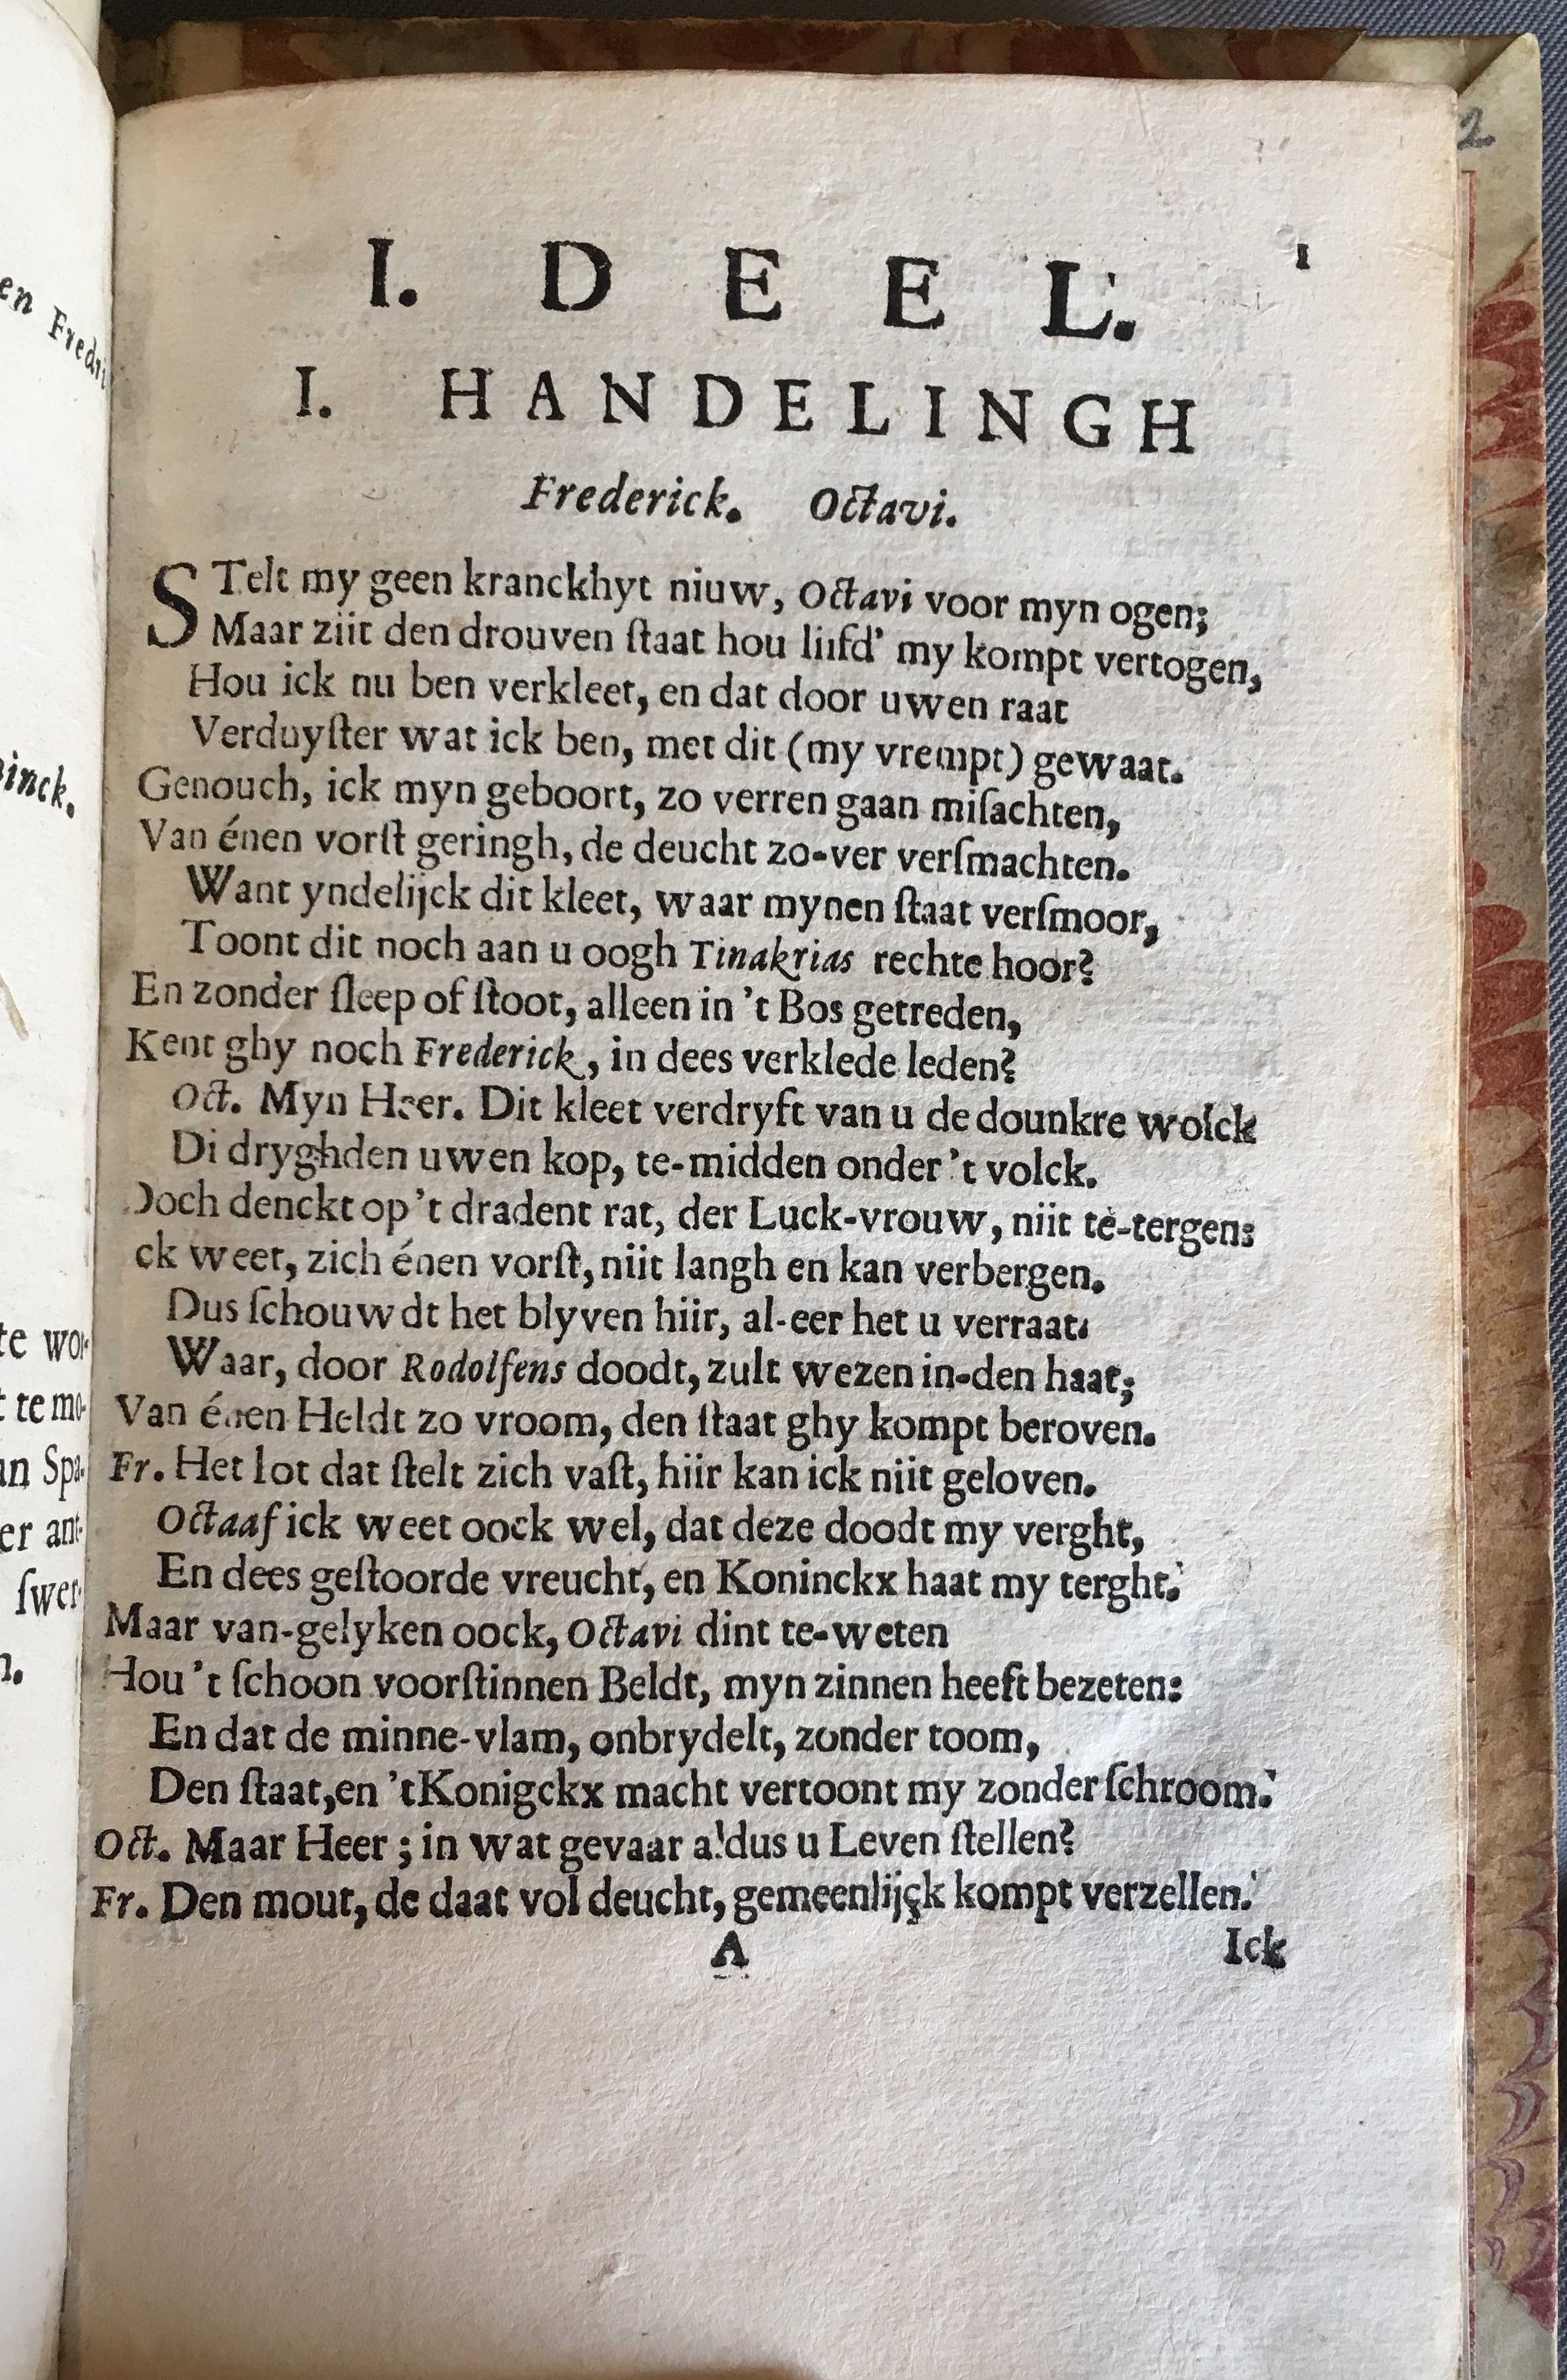 2
1
I. DEEL.
I. HANDELINGH
Frederick. Octavi.
STelt my geen kranckhyt niuw, Octavi voor myn ogen;
Maar ziit den drouven ſtaat hou liifd' my kompt vertogen,
Hou ick nu ben verkleet, en dat door uwen raat
Verduyſter wat ick ben, met dit (my vrempt) gewaat.
Genouch, ick myn geboort, zo verren gaan miſachten,
Van énen vorſt geringh, de deucht zo-ver verſmachten.
Want yndelijck dit kleet, waar mynen ſtaat verſmoor,
Toont dit noch aan u oogh Tinakrias rechte hoor?
En zonder ſleep of ſtoot, alleen in 't Bos getreden,
Kent ghy noch Frederick, in dees verklede leden?
Oct. Myn Heer. Dit kleet verdryft van u de dounkre wolck
Di dryghden uwen kop, te-midden onder 't volck.
Doch denckt op 't dradent rat, der Luck-vrouw, niit te-tergen:
ck weet, zich énen vorſt, niit langh en kan verbergen.
Dus ſchouwdt het blyven hiir, al-eer het u verraat.
Waar, door Rodolfens doodt, zult wezen in-den haat;
Van énen Heldt zo vroom, den ſtaat ghy kompt beroven.
Fr. Het lot dat ſtelt zich vaſt, hiir kan ick niit geloven.
Octaaf ick weet oock wel, dat deze doodt my verght,
En dees geſtoorde vreucht, en Koninckx haat my terght.
Maar van-gelyken oock, Octavi dint te-weten
Hou 't ſchoon voorſtinnen Beldt, myn zinnen heeft bezeten:
En dat de minne-vlam, onbrydelt, zonder toom,
Den ſtaat, en 't Konigckx macht vertoont my zonder ſchroom.
Oct. Maar Heer; in wat gevaar aldus u Leven ſtellen?
Fr. Den mout, de daat vol deucht, gemeenlijck kompt verzellen.
A Ick
en Fredri
ninck.
te wor-
t te mo-
an Spa-
er ant-
ſwer-
n.